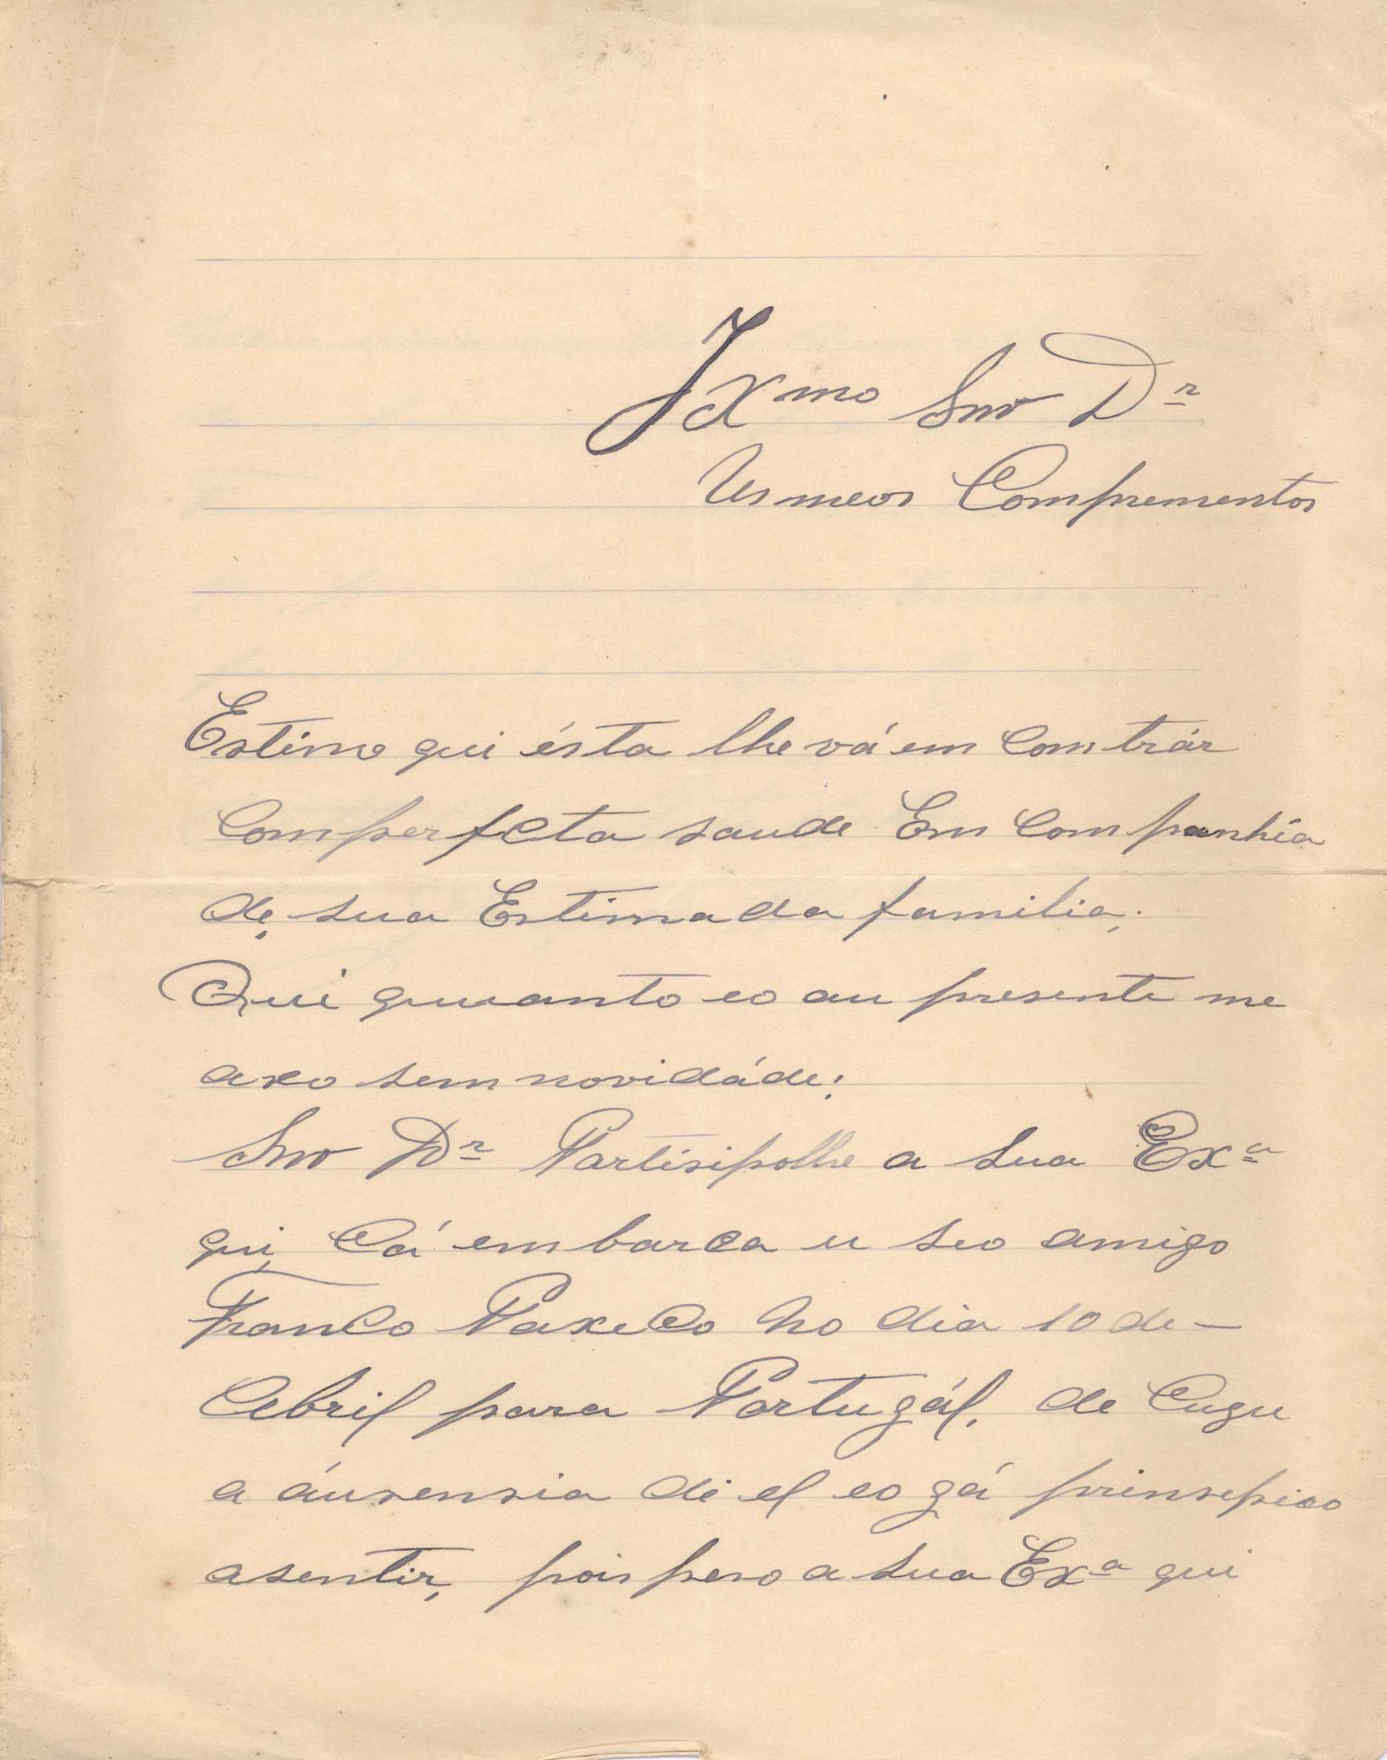 Ixmo Snr Dr
Us meos Comprementos
Estimo qui ésta lhe vá em comtrár
Com perfeta saude Em Companhia
de sua Estimada familia,
Qui quuanto eo au presente me
axo sem novidáde;
Snr Dr Partisipolhe a sua Exa
qui, Cá embarca u seo amigo
Franco Paxeco no dia 10 de -
Abril para Portugál. de Cugu
a áusensia di el eo gá prinsipio
asentir, pois peso a sua Exa qui